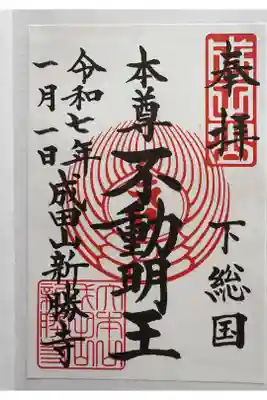 奉拝
下総国
本尊
不動明王
成田山新勝寺
令和七年
一月一日